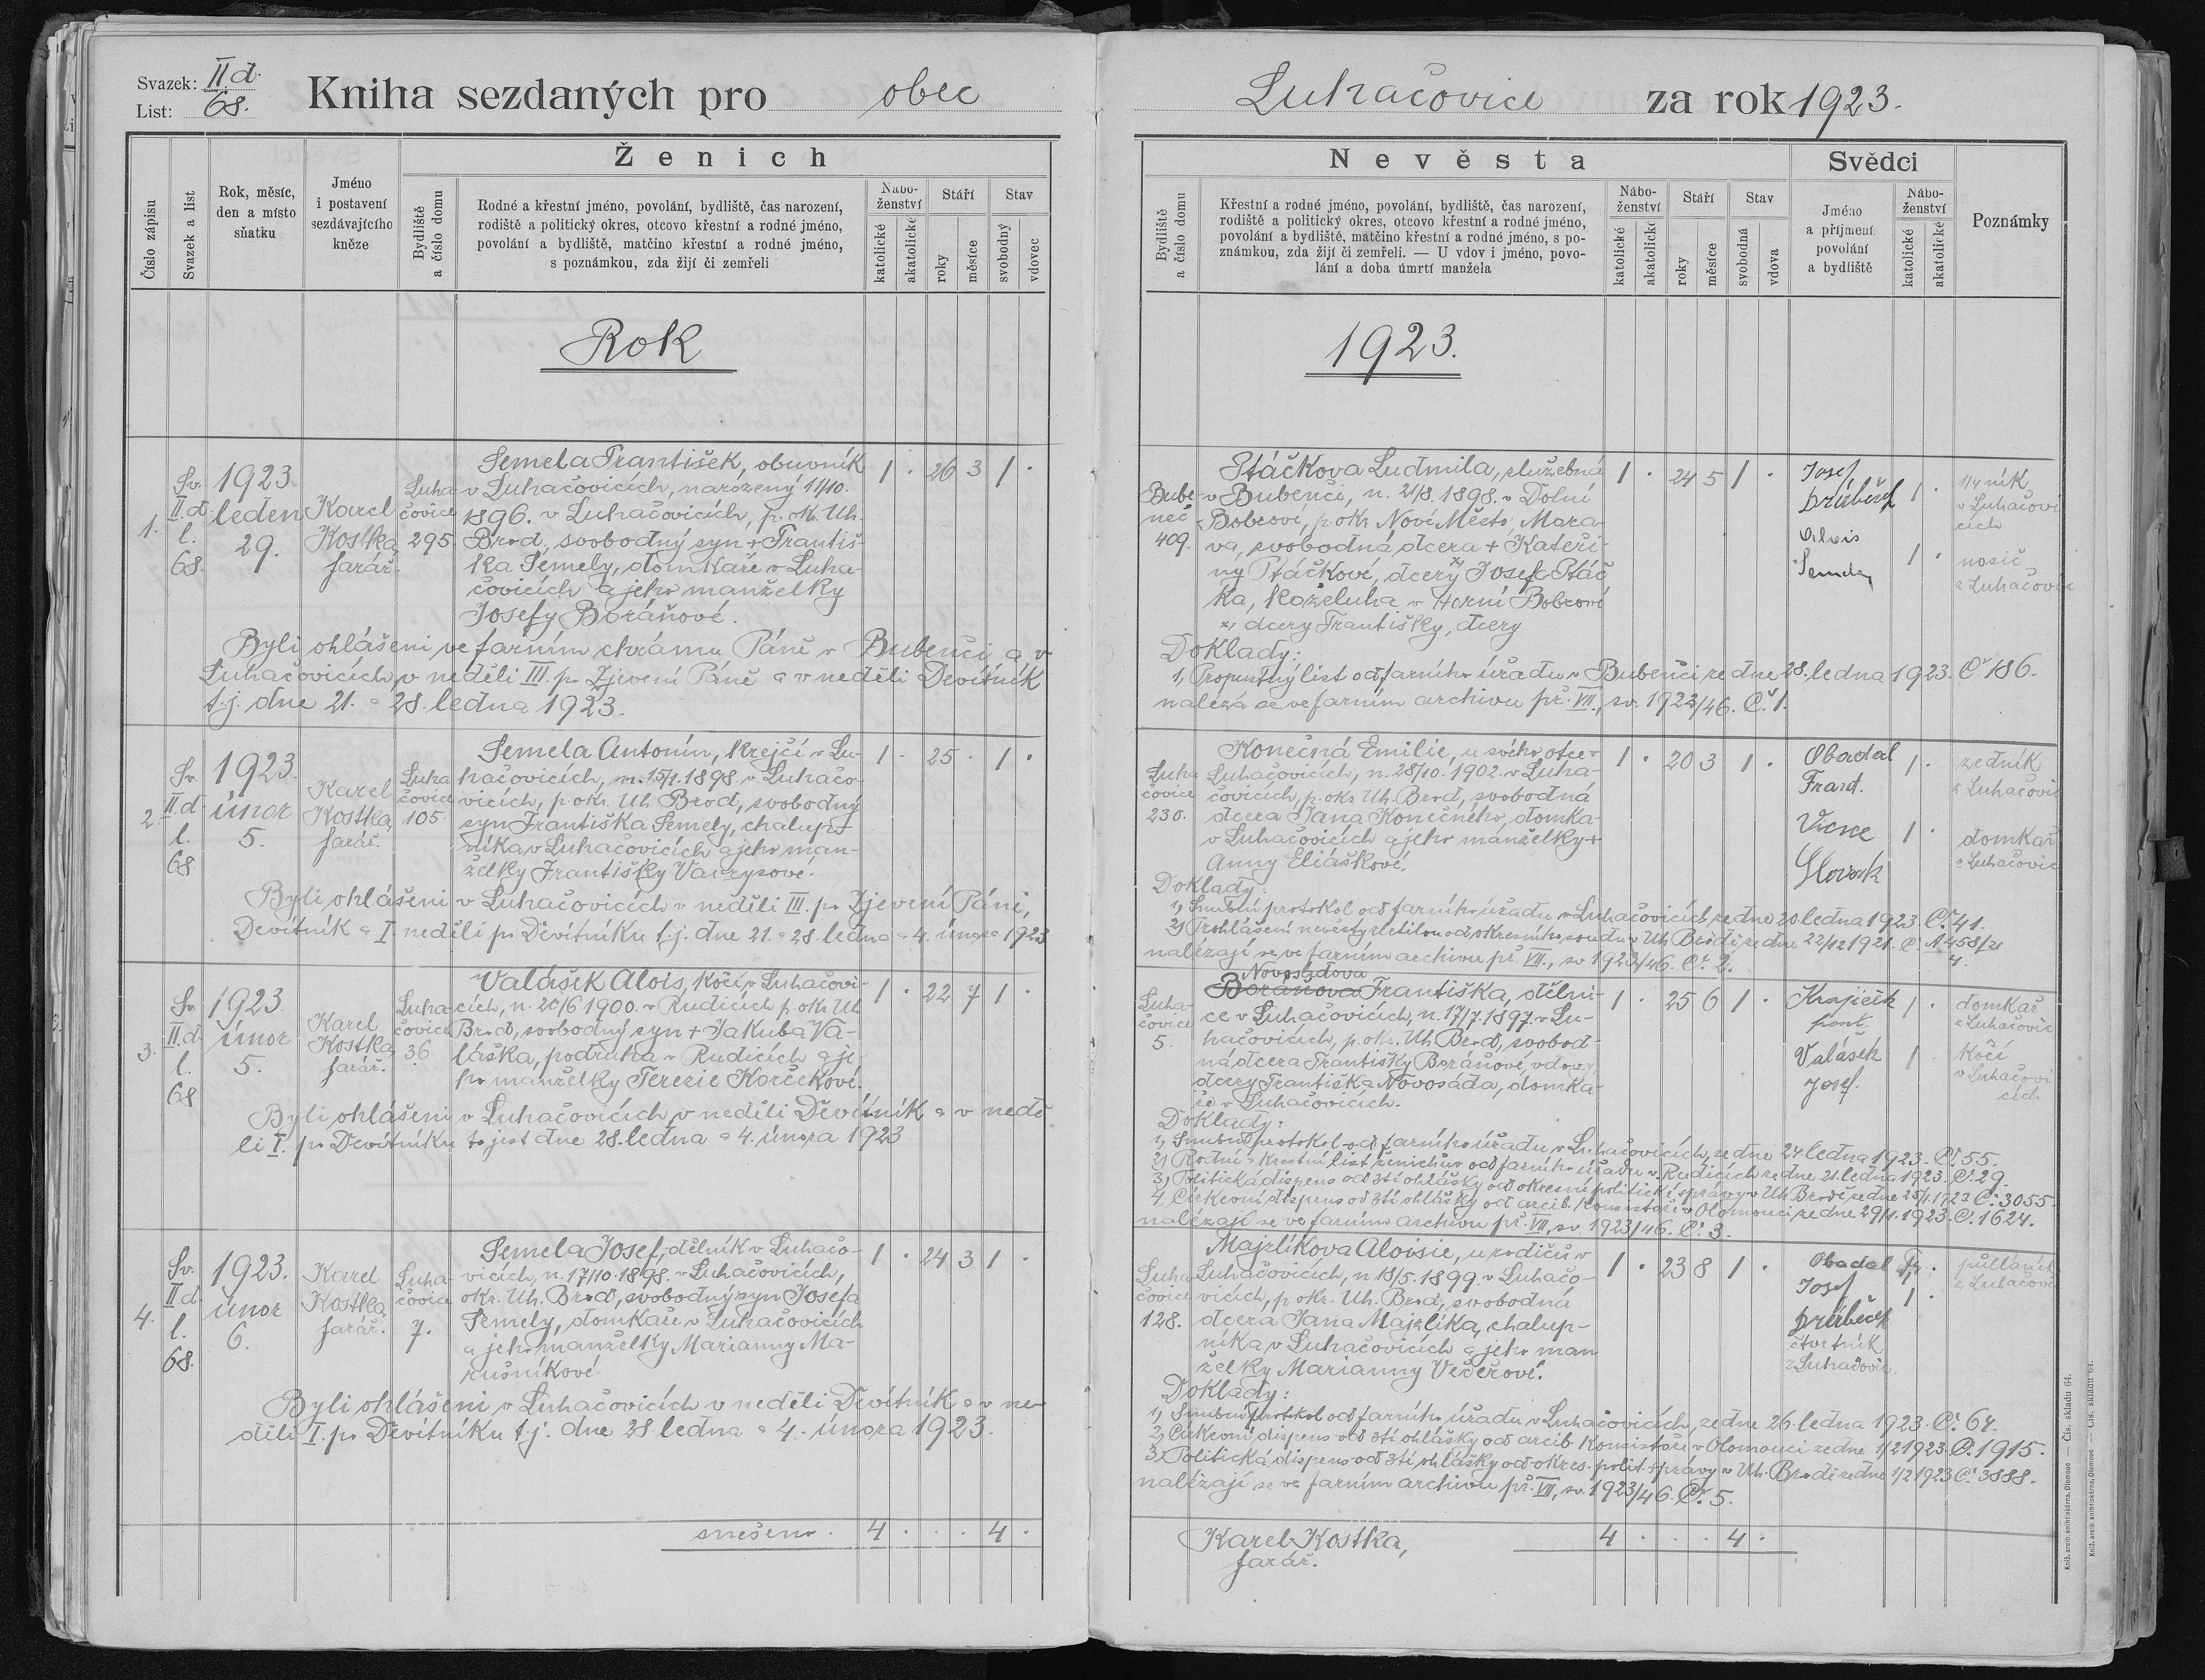 Svazek: II d.
List: 68.
Kniha sezdaných pro obec
Ženich
Číslo zápisu
Svazek a list
Rok, měsíc,
den a místo
sňatku
Jméno
i postavení
sezdávajícího
kněze
Bydliště
a číslo domu
Rodné a křestní jméno, povolání, bydliště, čas narození,
rodiště a politický okres, otcovo křestní a rodné jméno,
povolání a bydliště, matčino křestní a rodné jméno,
s poznámkou, zda žijí či zemřeli
Nábo-
ženství
katolické
akatolické
Stáří
roky
měsíce
Stav
svobodný
vdovec
Rok
1.
Sv.
II.d
l.
68.
1923.
leden
29.
Karel
Kostka,
farář.
Luha-
čovice
295.
Semela František, obuvník
v Luhačovicích, narozený 11/10.
1896. v Luhačovicích, p. okr. Uh.
Brod, svobodný syn + Františ-
ka Semely, domkaře v Luha-
čovicích a jeho manželky
Josefy Boráňové.
1 . 26 3 1 .
Byli ohlášeni ve farním chrámu Páně v Bubenči a v
Luhačovicích, v neděli III. po Zjevení Páně a v neděli Devítník
t.j. dne 21. a 28. ledna 1923.
2.
Sv.
II.d.
l.
68
1923.
únor
5.
Karel
Kostka,
farář.
Luha
čovice
105.
Semela Antonín, krejčí v Lu-
hačovicích, n. 15/1. 1898. v Luhačo-
vicích, p. okr. Uh. Brod, svobodný
syn Františka Semely, chalup-
níka v Luhačovicích a jeho man-
želky Františky
1 . 25 . 1 .
Byli ohlášeni v Luhačovicích v neděli III. po Zjevení Páně,
Devítník a I. neděli po Devítníku t.j. dne 21. a 28. ledna a 4. února 1923
3.
Sv.
II.d.
l.
68
1923.
únor
5.
Karel
Kostka,
farář.
Luha-
čovice
36.
Valášek Alois, kočí v Luhačovi-
cích, n. 20/6 1900. v Rudicích p. okr. Uh
Brod, svobodný syn + Jakuba Va-
láška, podruha v Rudicích a je-
ho manželky Terezie Korčekové.
1 . 22 7 1 .
Byli ohlášeni v Luhačovicích v neděli Devítník a v nedě
li I. po Devítníku to jest dne 28. ledna a 4. února 1923
4.
Sv.
II.d.
l.
68.
1923.
únor
6.
Karel
Kostka,
farář.
Luha-
čovice
7.
Semela Josef, dělník v Luhačo-
vicích, n. 17/10. 1898. v Luhačovicích,
okr. Uh. Brod, svobodný syn Josefa
Semely, domkaře v Luhačovicích
a jeho manželky Marianny Ma-
rušníkové.
1 . 24 3 1 .
Byli ohlášeni v Luhačovicích v neděli Devítník a v ne-
děli I. po Devítníku t.j. dne 28 ledna a 4. února 1923.
snešeno . 4 . . . 4 .
Luhačovice za rok 1923.
Nevěsta
Svědci
Bydliště
a číslo domu
Křestní a rodné jméno, povolání, bydliště, čas narození,
rodiště a politický okres, otcovo křestní a rodné jméno,
povolání a bydliště, matčino křestní a rodné jméno, s po-
známkou, zda žijí či zemřeli. — U vdov i jméno, povo-
lání a doba úmrtí manžela
Nábo-
ženství
katolické
akatolické
Stáří
roky
měsíce
Stav
svobodná
vdova
Jméno
a příjmení
povolání
a bydliště
Nábo-
ženství
katolické
akatolické
Poznámky
1923.
Bube-
neč
409.
Ptáčkova Ludmila, služebná
v Bubenči, n. 21/8. 1898. v Dolní
Bobrové, p. okr. Nové Město, Mora-
va, svobodná dcera + Kateři-
ny Ptáčkové, dcery x) Josefa Ptáč
ka, koželuha v Horní Bobrové
x) dcery Františky, dcery
1 . 24 5 1 .
Josef
Drúbežek
Alois
Semela
1 .
1 .
1/4 ník
v Luhačovi
cích
nosič
z Luhačovic
Doklady:
1, Propustný list od farního úřadu v Bubenči ze dne 28. ledna 1923. Č. 186.
nalézá se ve farním archivu př. VII., sv. 1923/46. Č. 1.
Luha
čovice
230.
Konečná Emilie, u svého otce v
Luhačovicích, n. 28/10. 1902. v Luha-
čovicích, p. okr. Uh. Brod, svobodná
dcera Jana Konečného, domka-
v Luhačovicích a jeho manželky +
Anny Eliáškové.
1 . 20 3 1 .
Obadal
Frant.
Slovák
1 .
1 .
zedník
z Luhačovic
domkař
z Luhačovic
Doklady:
1, Snubní protokol od farního úřadu v Luhačovicích ze dne 20 ledna 1923. Č. 41.
2, Prohlášení nevěsty zletilou od okresního soudu v Uh. Brodě ze dne 22/12 1921. Č. A 458/21
4.
nalézají se ve farním archivu př. VII., sv. 1923/46. Č. 2.
Luha-
čovice
5.
Novosádova
Boráňova Františka, dělni-
ce v Luhačovicích, n. 17/7. 1897. v Lu-
hačovicích, p. okr. Uh. Brod, svobod-
ná dcera Františky Boráňové, vdovy,
dcery Františka Novosáda, domka-
ře v Luhačovicích.
1 . 25 6 1 .
Krajíček
Valášek
Josef.
1 .
1 .
domkař
z Luhačovic
kočí
v Luhačovi
cích
Doklady:
1, Snubní protokol od farního úřadu v Luhačovicích, ze dne 24 ledna 1923. Č. 55.
2, Rodní a křestní list ženichův od farního úřadu v Rudicích ze dne 21. ledna 1923. Č. 29.
3, Politická dispens od 3tí ohlášky od okresní politické správy v Uh. Brodě ze dne 25/1. 1923 Č. 3055.
4, Církevní dispens od 3tí ohlášky od arcib. konsistoře v Olomouci ze dne 29/1. 1923. Č. 1624.
nalézají se ve farním archivu př. VII, sv. 1923/46. Č. 3.
Luha
čovice
128.
Majzlíkova Aloisie, u rodičů v
Luhačovicích, n 18/5. 1899. v Luhačo-
vicích, p okr. Uh. Brod, svobodná
dcera Jana Majzlíka, chalup-
níka v Luhačovicích a jeho man
želky Marianny Večeřové.
1 . 23 8 1 .
Obadal Fr.
Josef
Drúbežek
čtvrtník
z Luhačovic
1 .
1 .
půlláník
z Luhačovic
Doklady:
1, Snubní protokol od farního úřadu v Luhačovicích, ze dne 26 ledna 1923. Č. 64.
2, Církevní dispens od 3tí ohlášky od arcib. konsistoře v Olomouci ze dne 1/2 1923. Č. 1915.
3, Politická dispens od 3tí ohlášky od okres. polit. správy v Uh. Brodě ze dne 1/2 1923 Č. 3888.
nalézají se ve farním archivu př. VII, sv. 1923/46. Č. 5.
Karel Kostka,
farář.
4 . . . 4 .
Kniž. arcib. knihtiskárna, Olomouc — Čís. skladu 64.
Kniž. arcib. knihtiskárna, Olomouc — Čís. skladu 64.